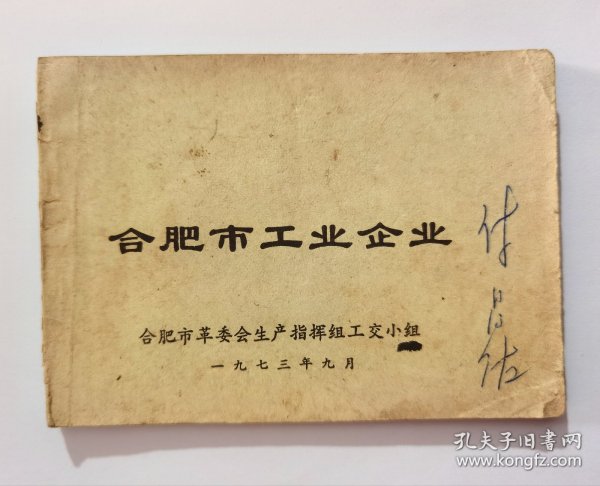 合肥市工业企业
合肥市革委会生产指挥组工交小组
一九七三年九月
付
昌
孔夫子旧書网
www.kongfz.com